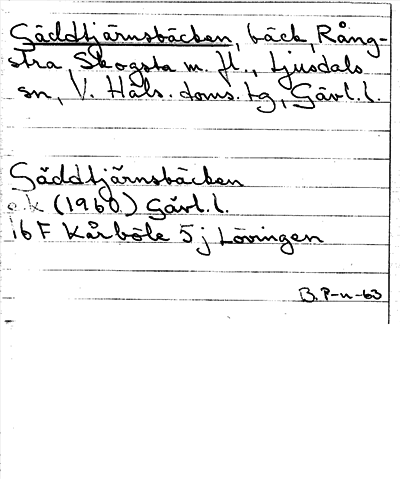 Gäddtjärnsbäcken, bäck, Rång-
stra Skogsta m. fl., Ljusdals
sn, V. Häls. doms. tg, Gävl. l.
Gäddtjärnsbäcken
e.k (1960) Gävl. l.
16 F Kårböle 5 j Lövingen
B. P-n -63